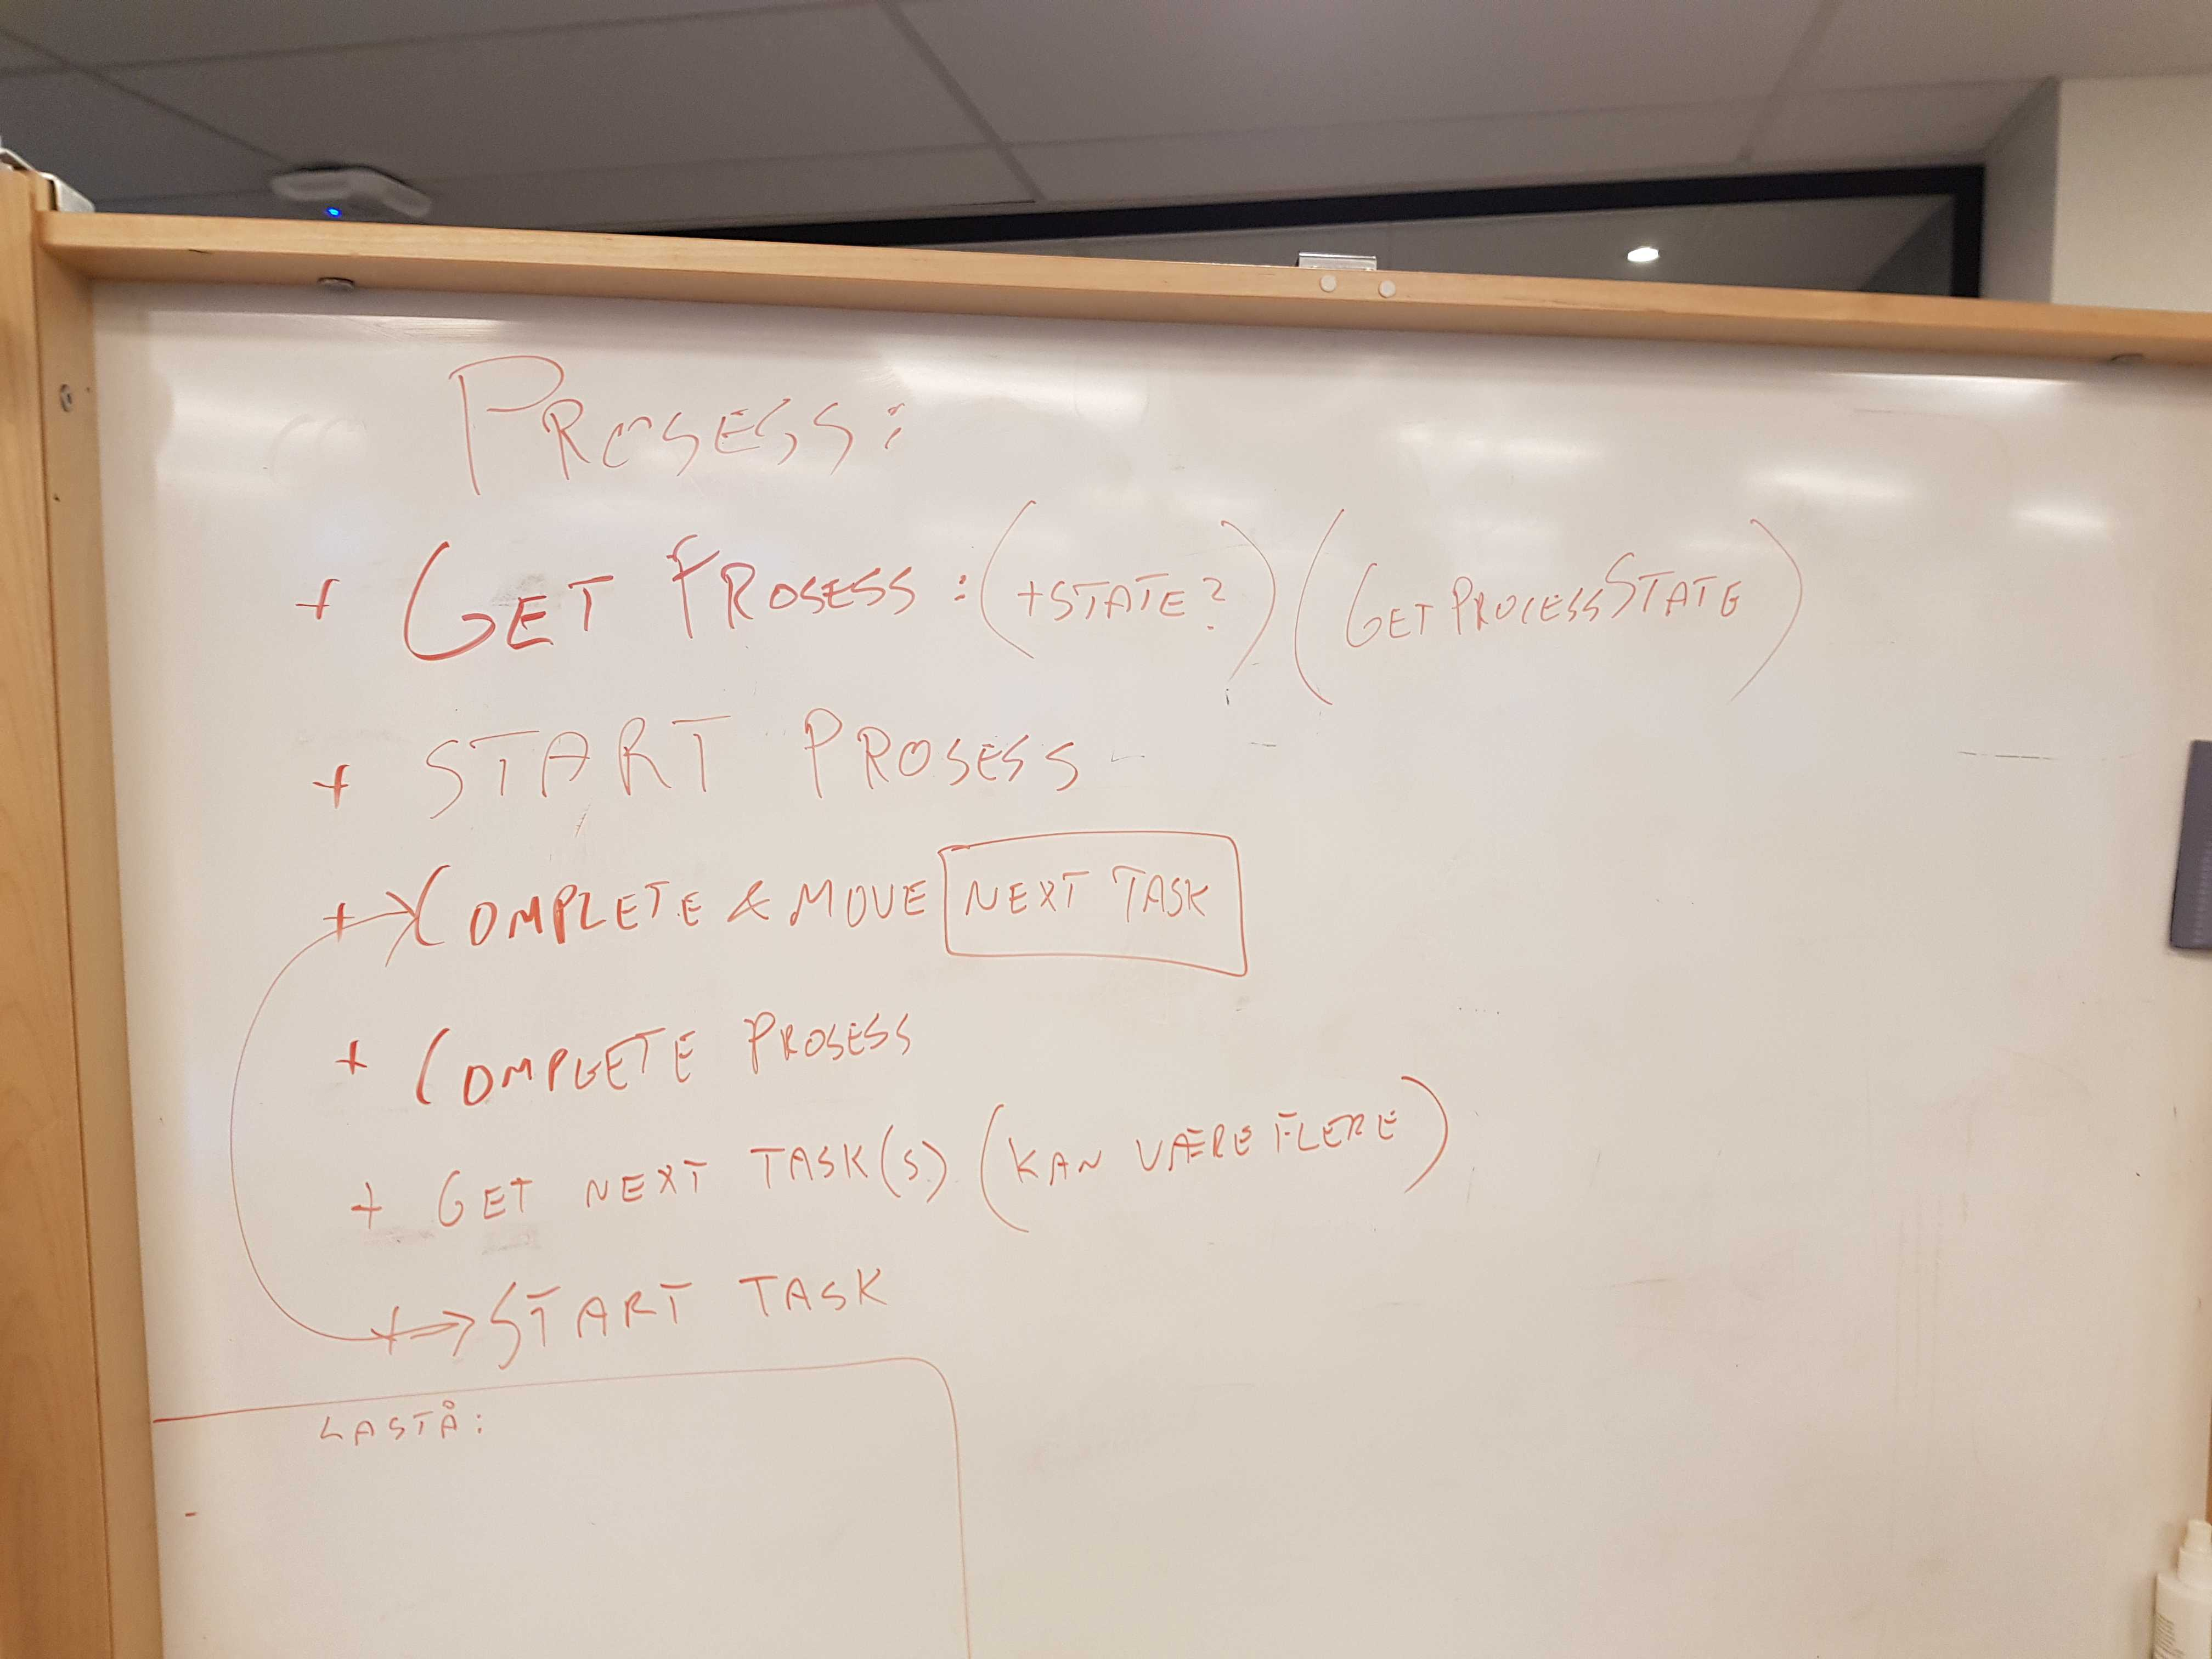 PROSESS:
+ GET PROSESS : (+STATE?) (GETPROCESSSTATE)
+ START PROSESS
+ COMPLETE & MOVE NEXT TASK
+ COMPLETE PROSESS
+ GET NEXT TASK(S) (KAN VÆRE FLERE)
+ START TASK
LASTÅ:
-